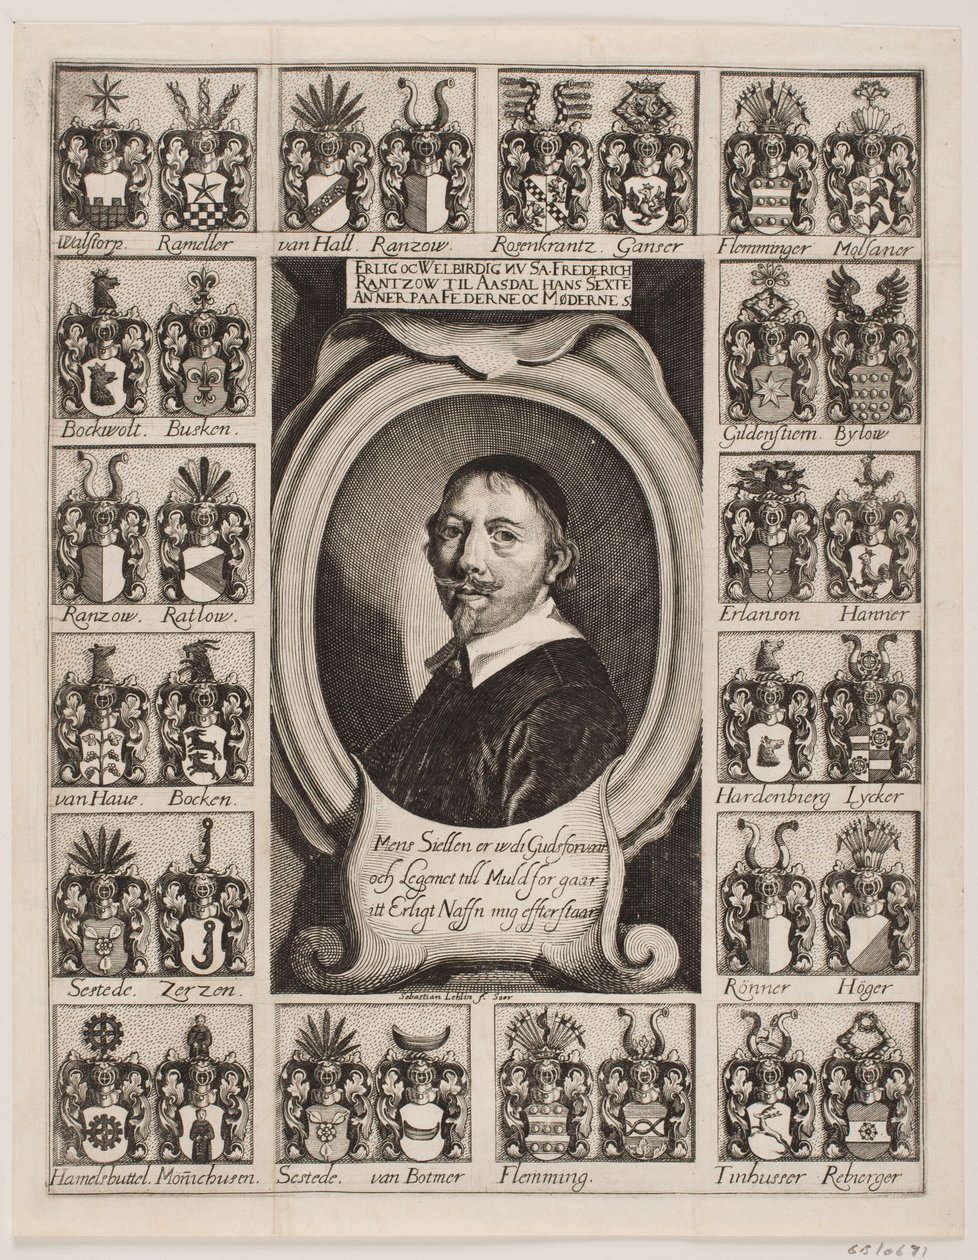 Walstorp. Rameller van Hall. Ranzow. Rosenkrantz. Ganser Flemminger Molsaner
ERLIG OC WELBIRDIG NV SA. FREDERICH
RANTZOW TIL AASDAL HANS SEXTE
ANNER PAA FEDERNE OC MØDERNE S
Bockwolt. Busken. Gildenstiern. Bylow
Ranzow. Ratlow. Erlanson Hanner
van Haue. Bocken. Hardenbierg Lycker
Mens Siellen er udi Guds forvaar
och Legemet till Muld for gaar
itt Erligt Naffn mig effterstaar
Sestede. Zerzen. Rönner Höger
Sebastian Lehlin f. Soer
Hamelsbuttel. Mon̄ichusen. Sestede. van Botmer Flemming. Tinhusser Rebierger